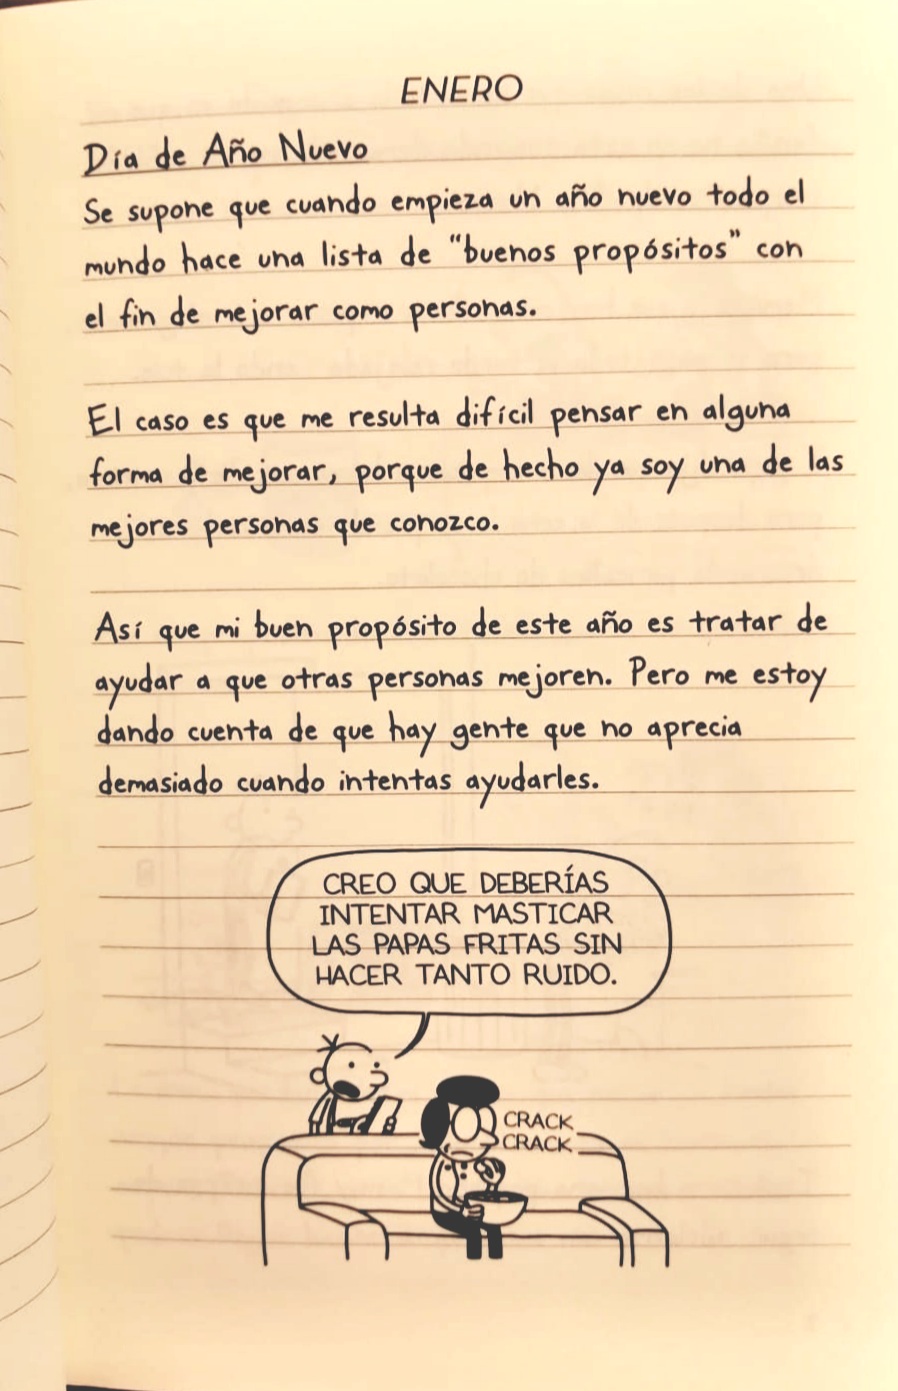 ENERO
Día de Año Nuevo
Se supone que cuando empieza un año nuevo todo el
mundo hace una lista de "buenos propósitos" con
el fin de mejorar como personas.
El caso es que me resulta difícil pensar en alguna
forma de mejorar, porque de hecho ya soy una de las
mejores personas que conozco.
Así que mi buen propósito de este año es tratar de
ayudar a que otras personas mejoren. Pero me estoy
dando cuenta de que hay gente que no aprecia
demasiado cuando intentas ayudarles.
CREO QUE DEBERÍAS
INTENTAR MASTICAR
LAS PAPAS FRITAS SIN
HACER TANTO RUIDO.
CRACK
CRACK